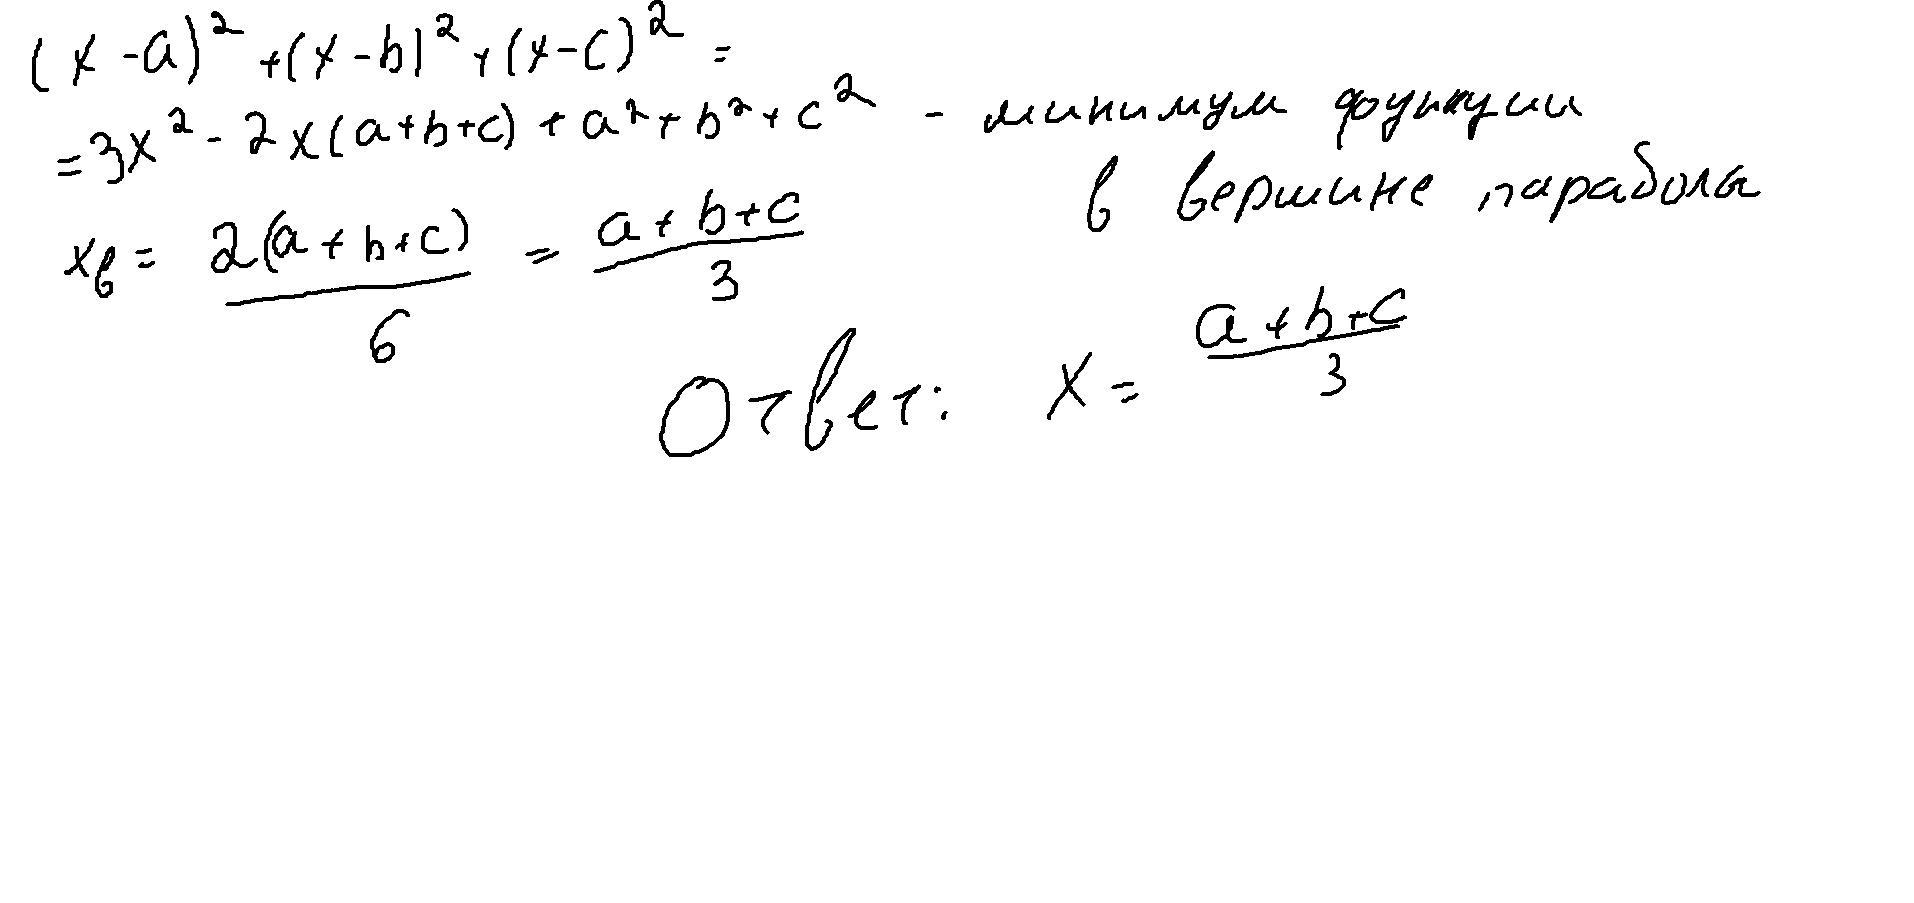 (x-a)² + (x-b)² + (x-c)² =
= 3x² - 2x(a+b+c) + a² + b² + c² - минимум функции
в вершине параболы
xв = 2(a+b+c)/6 = a+b+c/3
Ответ: x = a+b+c/3